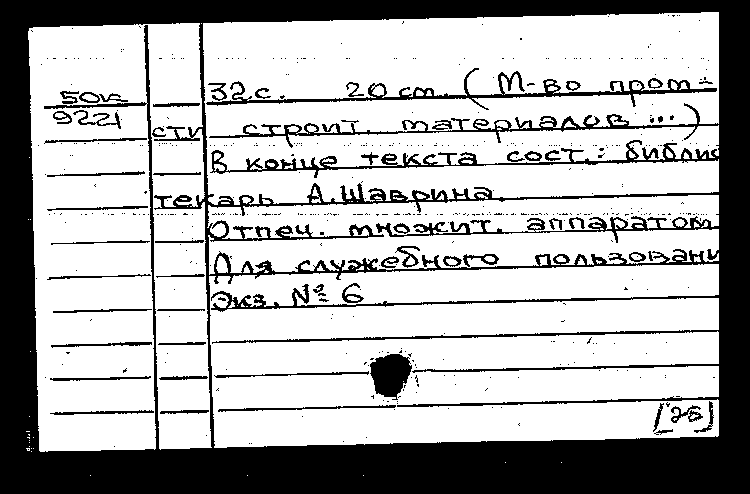 50к 32 с. 20 см. (М-во пром-
9221
сти строит. материалов ...)
В конце текста сост.: библио
текарь А. Шаврина.
Отпеч. множит. аппаратом.
Для служебного пользовани
Экз. № 6.